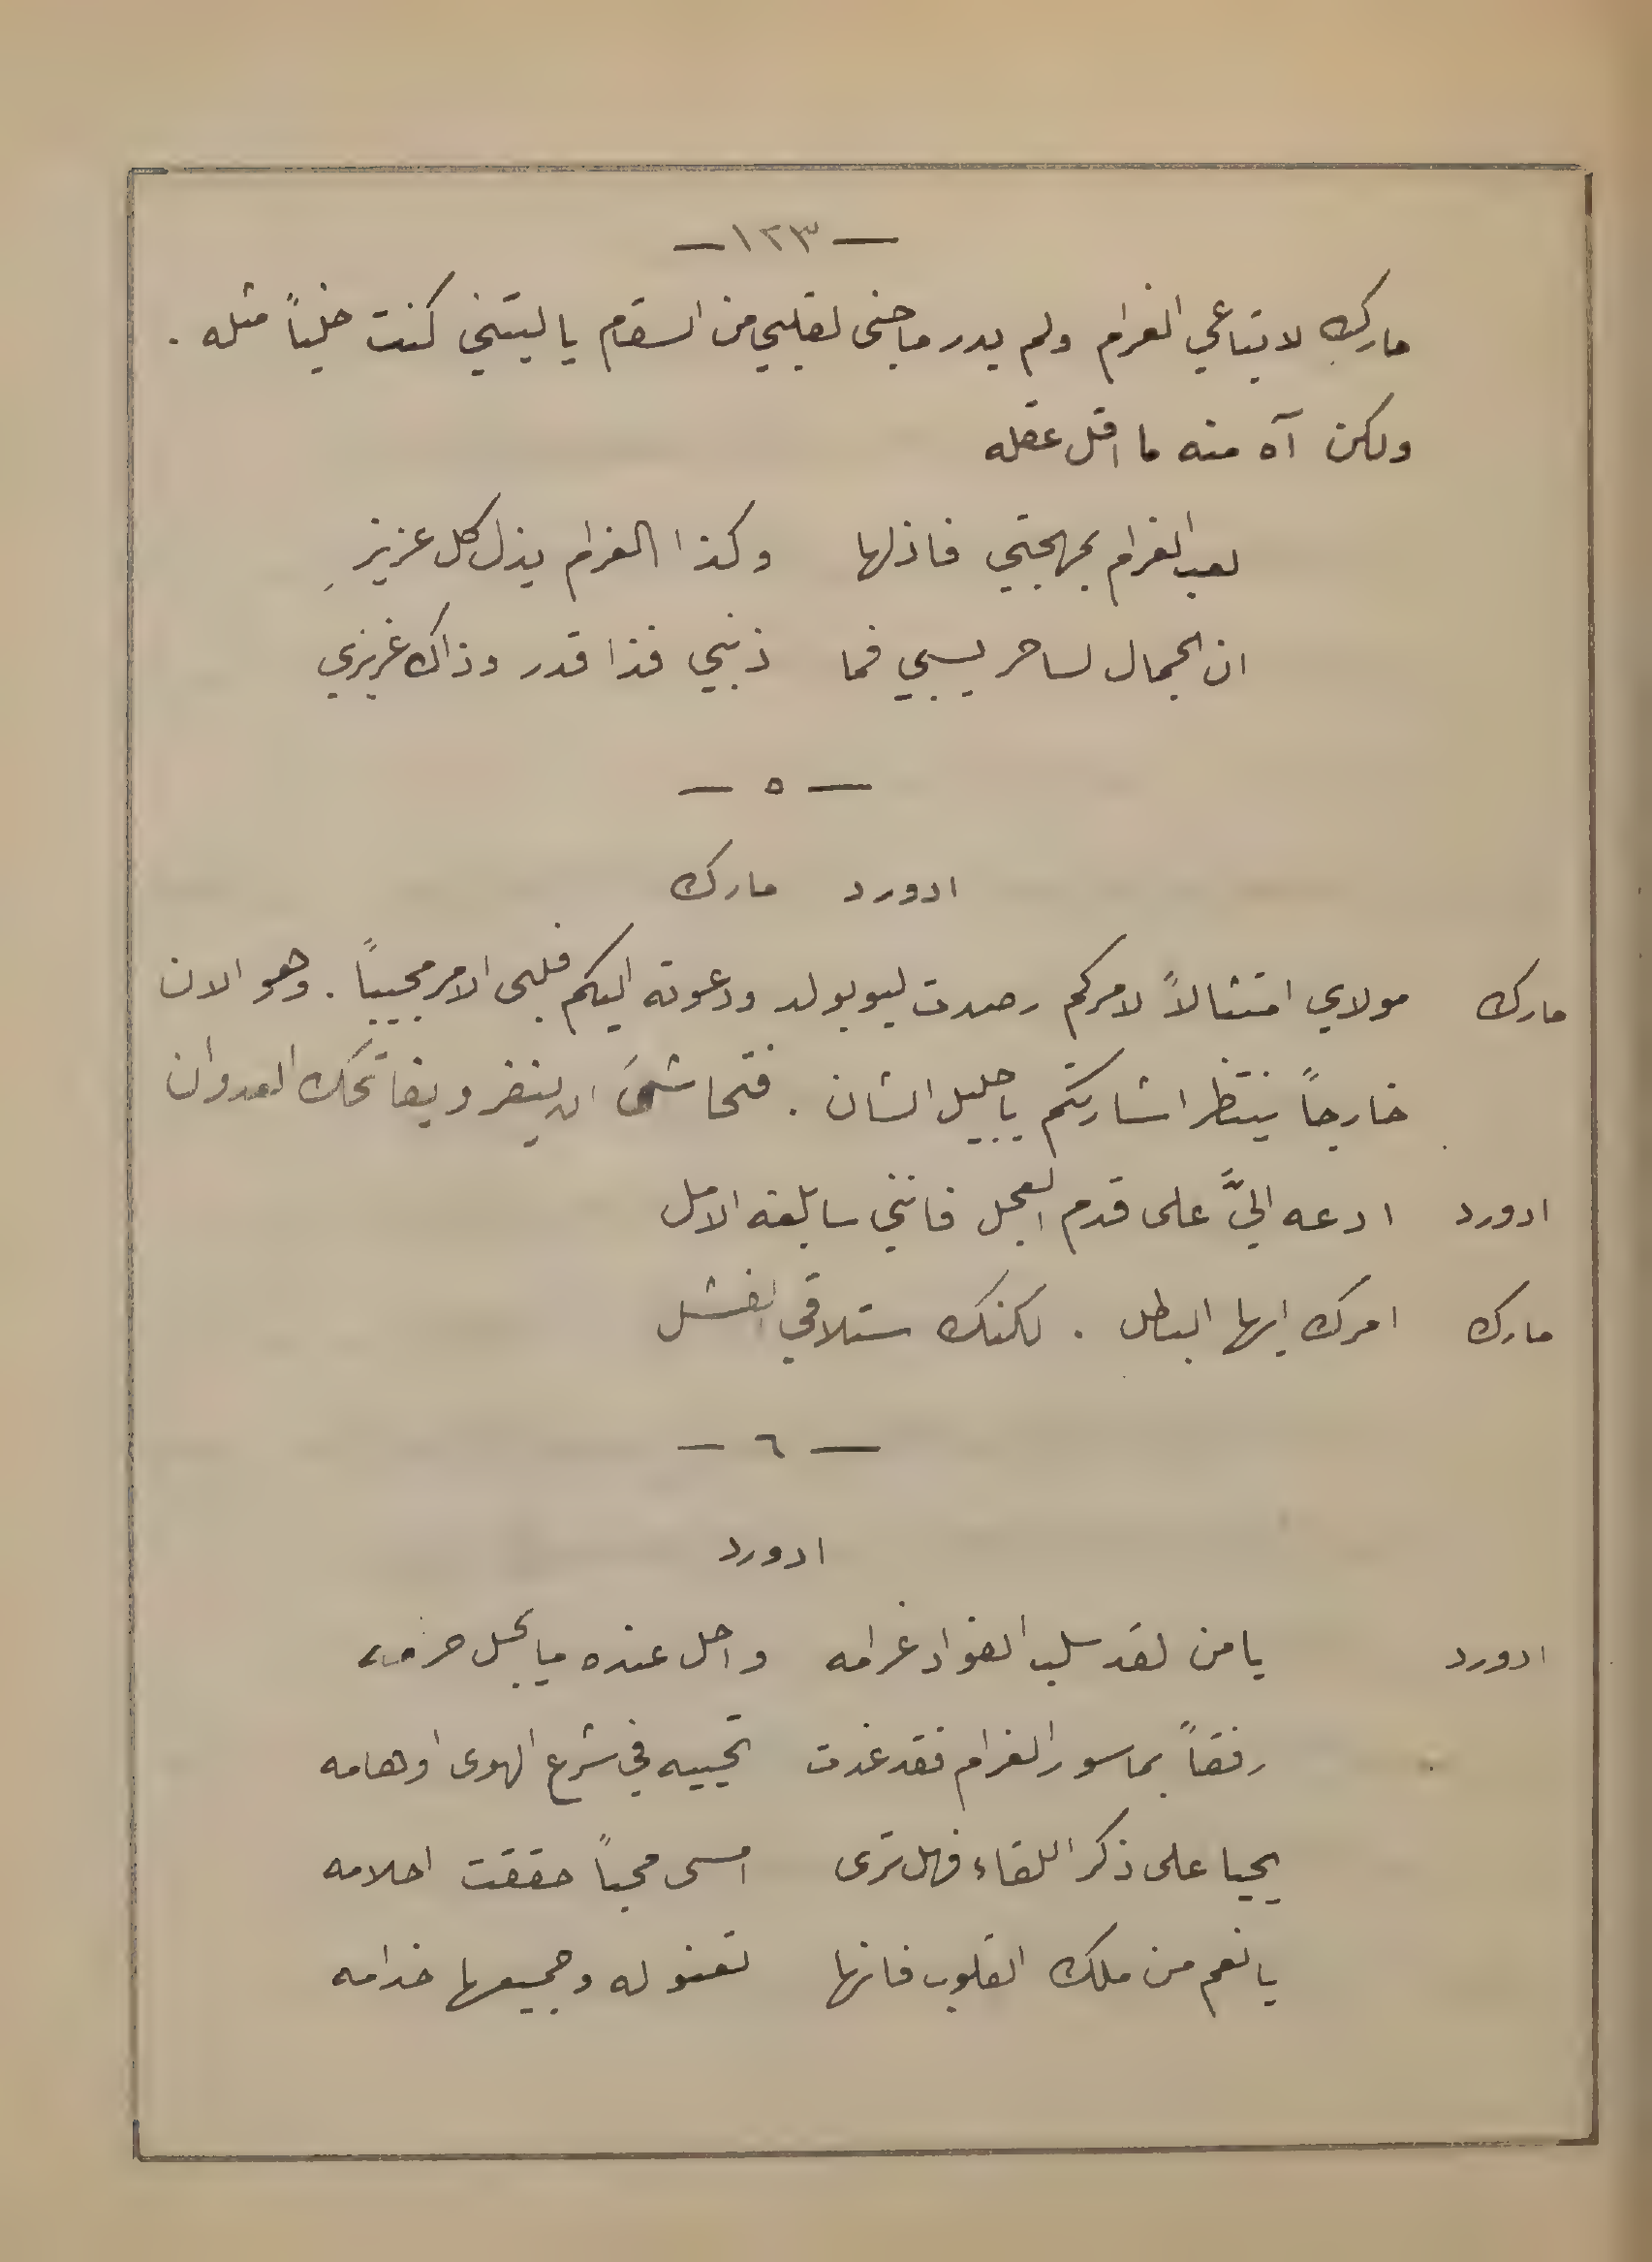 — ١٢٣ —
مارك لاتباعي الغرام ولم يدر ما جنى لقلبي من السقام يا ليتني كنت خلياً مثله .
ولكن آه منه ما اقل عقله
لعب الغرام بمهجتي فاذلها وكذا الغرام يذل كل عزيزِ
ان الجمال لساحر يسبي فما ذنبي فذا قدر وذاك غريزي
— ٥ —
ادورد مارك
مارك مولاي امتثالاً لامركم رصدت ليوبولد ودعوته اليكم فلبى الامر مجيباً . وهو الان
خارجاً ينتظر اشارتكم يا جليل الشان . فتحاشىَ ان ينفر ويفاتحك العدوان
ادورد ادعه اليَّ على قدم العجل فانني سابلغه الامل
مارك امرك ايها البطل . لكنك ستلاقي الفشل
— ٦ —
ادورد
ادورد يا من لقد سلب الفواد غرامه واحل عنده ما يحل حرامه
رفقاً بماسور الغرام فقد غدت تحييه في شرع الهوى اوهامه
يحيا على ذكر اللقاء فهل ترى امسى محباً حققت احلامه
يا نعم من ملك القلوب فانها تعنو له وجميعها خدامه